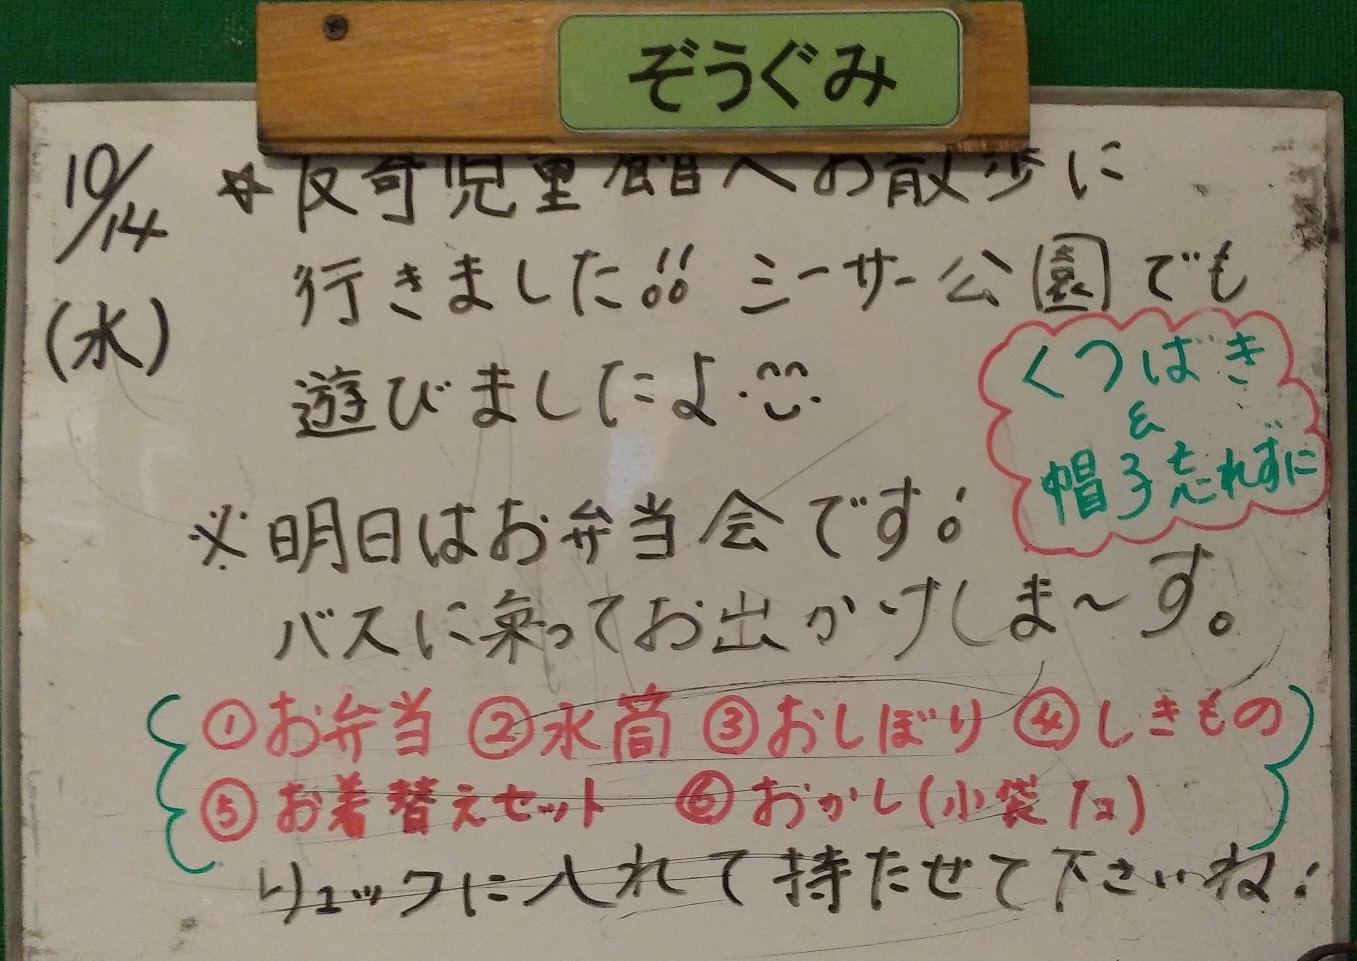 ぞうぐみ
10/14
(水)
☆安奇児童館へお散歩に
行きました!! シーサー公園でも
遊びましたよ
くつばき
&
帽子忘れずに
※明日はお弁当会です!
バスに乗ってお出かけしま〜す。
①お弁当 ②水筒 ③おしぼり ④しきもの
⑤お着替えセット ⑥おかし(小袋1コ)
リュックに入れて持たせて下さいね!